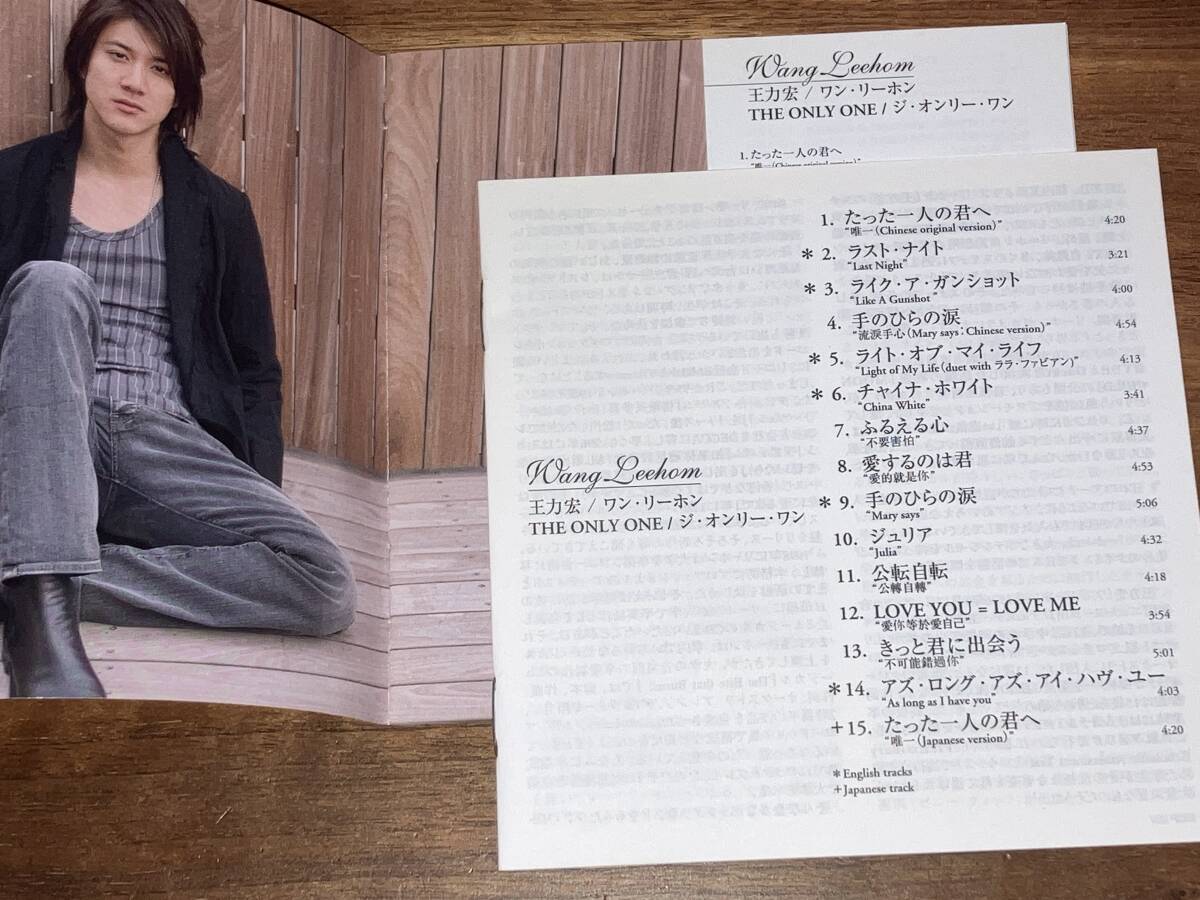 Wang Leehom
王力宏 / ワン・リーホン
THE ONLY ONE / ジ・オンリー・ワン
1. たった一人の君へ
"唯一 (Chinese original version)"
Wang Leehom
王力宏 / ワン・リーホン
THE ONLY ONE / ジ・オンリー・ワン
1. たった一人の君へ 4:20
"唯一 (Chinese original version)"
* 2. ラスト・ナイト 3:21
"Last Night"
* 3. ライク・ア・ガンショット 4:00
"Like A Gunshot"
4. 手のひらの涙 4:54
"流淚手心 (Mary says : Chinese version)"
* 5. ライト・オブ・マイ・ライフ 4:13
"Light of My Life (duet with ララ・ファビアン)"
* 6. チャイナ・ホワイト 3:41
"China White"
7. ふるえる心 4:37
"不要害怕"
8. 愛するのは君 4:53
"愛的就是你"
* 9. 手のひらの涙 5:06
"Mary says"
10. ジュリア 4:32
"Julia"
11. 公転自転 4:18
"公轉自轉"
12. LOVE YOU = LOVE ME 3:54
"愛你等於愛自己"
13. きっと君に出会う 5:01
"不可能錯過你"
* 14. アズ・ロング・アズ・アイ・ハヴ・ユー 4:03
"As long as I have you"
+ 15. たった一人の君へ 4:20
"唯一 (Japanese version)"
* English tracks
+ Japanese track